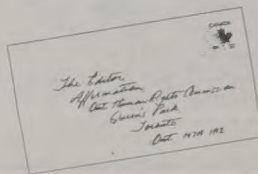 CANADA
The Editor,
Affirmation,
Ont Human Rights Commission
Queen's Park
Toronto
Ont M7A 1R2